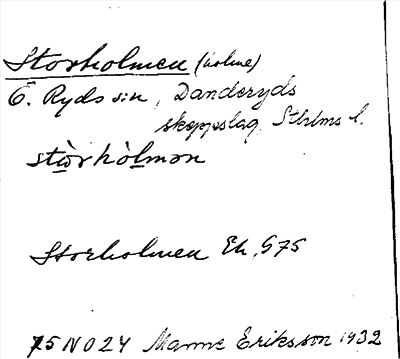 Storholmen (holme)
Ö. Ryds sn, Danderyds
skeppslag, Sthlms l.
stòrhòlmən
Storholmen Ek. 575
75 N O 24 Manne Eriksson 1932